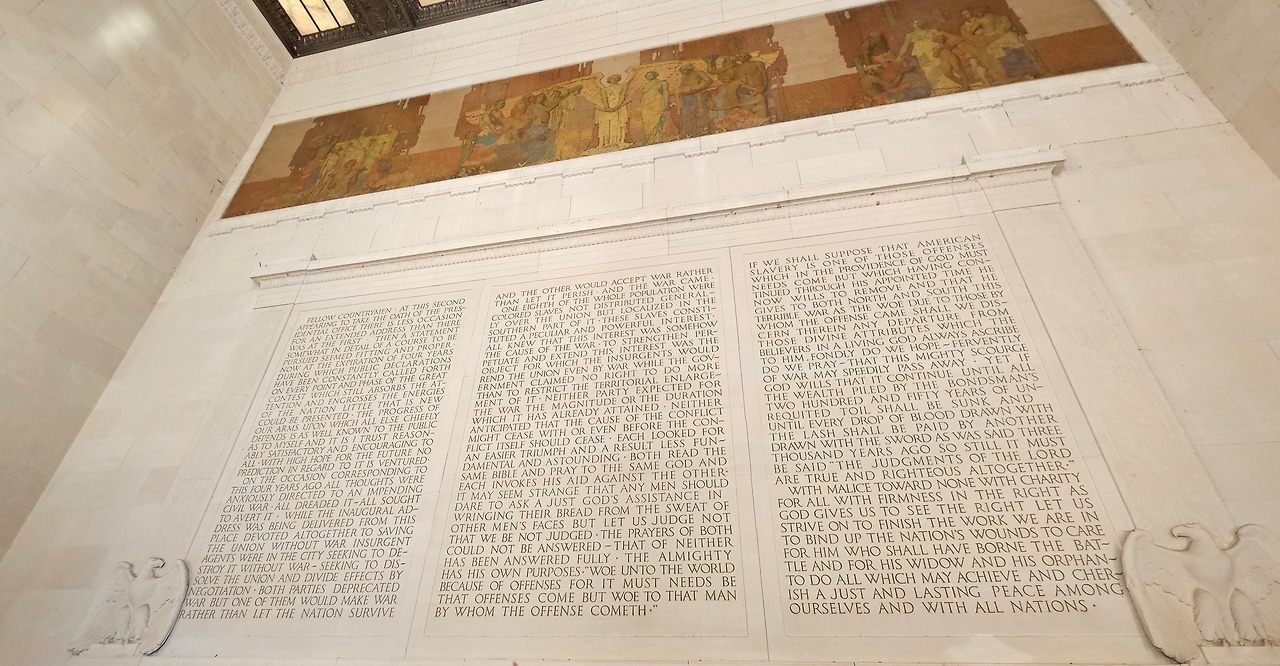 FELLOW COUNTRYMEN · AT THIS SECOND
APPEARING TO TAKE THE OATH OF THE PRES-
IDENTIAL OFFICE THERE IS LESS OCCASION
FOR AN EXTENDED ADDRESS THAN THERE
WAS AT THE FIRST · THEN A STATEMENT
SOMEWHAT IN DETAIL OF A COURSE TO BE
PURSUED SEEMED FITTING AND PROPER ·
NOW AT THE EXPIRATION OF FOUR YEARS
DURING WHICH PUBLIC DECLARATIONS
HAVE BEEN CONSTANTLY CALLED FORTH
ON EVERY POINT AND PHASE OF THE GREAT
CONTEST WHICH STILL ABSORBS THE AT-
TENTION AND ENGROSSES THE ENERGIES
OF THE NATION LITTLE THAT IS NEW
COULD BE PRESENTED · THE PROGRESS OF
OUR ARMS UPON WHICH ALL ELSE CHIEFLY
DEPENDS IS AS WELL KNOWN TO THE PUBLIC
AS TO MYSELF AND IT IS I TRUST REASON-
ABLY SATISFACTORY AND ENCOURAGING TO
ALL · WITH HIGH HOPE FOR THE FUTURE NO
PREDICTION IN REGARD TO IT IS VENTURED ·
ON THE OCCASION CORRESPONDING TO
THIS FOUR YEARS AGO ALL THOUGHTS WERE
ANXIOUSLY DIRECTED TO AN IMPENDING
CIVIL WAR · ALL DREADED IT ~ ALL SOUGHT
TO AVERT IT · WHILE THE INAUGURAL AD-
DRESS WAS BEING DELIVERED FROM THIS
PLACE DEVOTED ALTOGETHER TO SAVING
THE UNION WITHOUT WAR INSURGENT
AGENTS WERE IN THE CITY SEEKING TO DE-
STROY IT WITHOUT WAR ~ SEEKING TO DIS-
SOLVE THE UNION AND DIVIDE EFFECTS BY
NEGOTIATION · BOTH PARTIES DEPRECATED
WAR BUT ONE OF THEM WOULD MAKE WAR
RATHER THAN LET THE NATION SURVIVE
AND THE OTHER WOULD ACCEPT WAR RATHER
THAN LET IT PERISH · AND THE WAR CAME ·
ONE EIGHTH OF THE WHOLE POPULATION WERE
COLORED SLAVES NOT DISTRIBUTED GENERAL-
LY OVER THE UNION BUT LOCALIZED IN THE
SOUTHERN PART OF IT · THESE SLAVES CONSTI-
TUTED A PECULIAR AND POWERFUL INTEREST ·
ALL KNEW THAT THIS INTEREST WAS SOMEHOW
THE CAUSE OF THE WAR · TO STRENGTHEN PER-
PETUATE AND EXTEND THIS INTEREST WAS THE
OBJECT FOR WHICH THE INSURGENTS WOULD
REND THE UNION EVEN BY WAR WHILE THE GOV-
ERNMENT CLAIMED NO RIGHT TO DO MORE
THAN TO RESTRICT THE TERRITORIAL ENLARGE-
MENT OF IT · NEITHER PARTY EXPECTED FOR
THE WAR THE MAGNITUDE OR THE DURATION
WHICH IT HAS ALREADY ATTAINED · NEITHER
ANTICIPATED THAT THE CAUSE OF THE CONFLICT
MIGHT CEASE WITH OR EVEN BEFORE THE CON-
FLICT ITSELF SHOULD CEASE · EACH LOOKED FOR
AN EASIER TRIUMPH AND A RESULT LESS FUN-
DAMENTAL AND ASTOUNDING · BOTH READ THE
SAME BIBLE AND PRAY TO THE SAME GOD AND
EACH INVOKES HIS AID AGAINST THE OTHER ·
IT MAY SEEM STRANGE THAT ANY MEN SHOULD
DARE TO ASK A JUST GOD'S ASSISTANCE IN
WRINGING THEIR BREAD FROM THE SWEAT OF
OTHER MEN'S FACES BUT LET US JUDGE NOT
THAT WE BE NOT JUDGED · THE PRAYERS OF BOTH
COULD NOT BE ANSWERED ~ THAT OF NEITHER
HAS BEEN ANSWERED FULLY · THE ALMIGHTY
HAS HIS OWN PURPOSES · "WOE UNTO THE WORLD
BECAUSE OF OFFENSES FOR IT MUST NEEDS BE
THAT OFFENSES COME BUT WOE TO THAT MAN
BY WHOM THE OFFENSE COMETH · "
IF WE SHALL SUPPOSE THAT AMERICAN
SLAVERY IS ONE OF THOSE OFFENSES
WHICH IN THE PROVIDENCE OF GOD MUST
NEEDS COME BUT WHICH HAVING CON-
TINUED THROUGH HIS APPOINTED TIME HE
NOW WILLS TO REMOVE AND THAT HE
GIVES TO BOTH NORTH AND SOUTH THIS
TERRIBLE WAR AS THE WOE DUE TO THOSE BY
WHOM THE OFFENSE CAME SHALL WE DIS-
CERN THEREIN ANY DEPARTURE FROM
THOSE DIVINE ATTRIBUTES WHICH THE
BELIEVERS IN A LIVING GOD ALWAYS ASCRIBE
TO HIM · FONDLY DO WE HOPE ~ FERVENTLY
DO WE PRAY THAT THIS MIGHTY SCOURGE
OF WAR MAY SPEEDILY PASS AWAY · YET IF
GOD WILLS THAT IT CONTINUE UNTIL ALL
THE WEALTH PILED BY THE BONDSMAN'S
TWO HUNDRED AND FIFTY YEARS OF UN-
REQUITED TOIL SHALL BE SUNK AND
UNTIL EVERY DROP OF BLOOD DRAWN WITH
THE LASH SHALL BE PAID BY ANOTHER
DRAWN WITH THE SWORD AS WAS SAID THREE
THOUSAND YEARS AGO SO STILL IT MUST
BE SAID "THE JUDGMENTS OF THE LORD
ARE TRUE AND RIGHTEOUS ALTOGETHER · "
WITH MALICE TOWARD NONE WITH CHARITY
FOR ALL WITH FIRMNESS IN THE RIGHT AS
GOD GIVES US TO SEE THE RIGHT LET US
STRIVE ON TO FINISH THE WORK WE ARE IN
TO BIND UP THE NATION'S WOUNDS TO CARE
FOR HIM WHO SHALL HAVE BORNE THE BAT-
TLE AND FOR HIS WIDOW AND HIS ORPHAN ~
TO DO ALL WHICH MAY ACHIEVE AND CHER-
ISH A JUST AND LASTING PEACE AMONG
OURSELVES AND WITH ALL NATIONS ·